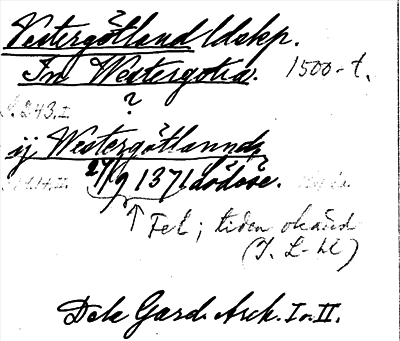 Vestergötland ldskp.
In Westergotia. 1500-t.
?
S. 243. I
ij Westergötlanndz
27/9 1371 dödöse.
↑ Fel; tiden okänd
(J. L-hl)
Dela Gard. Ark. I o. II.